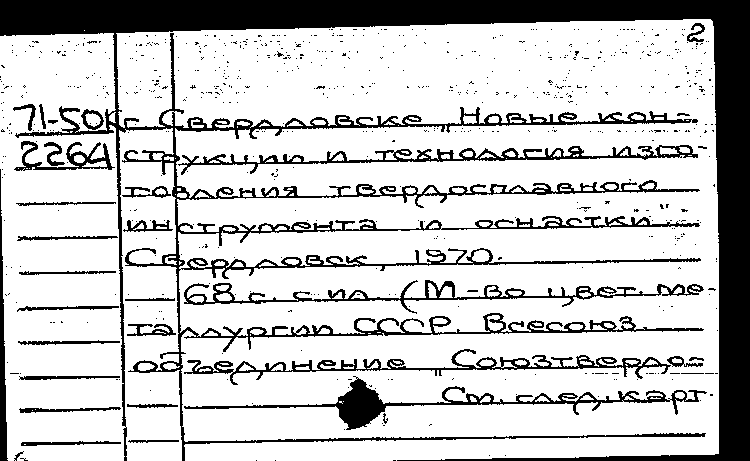 2
71-50К г Свердловске „Новые кон=
2264 струкции и технология изго-
товления твердосплавного
инструмента и оснастки".
Свердловск, 1970.
68 с. с ил. (М-во цвет. ме-
таллургии СССР. Всесоюз.
объединение „Союзтвердо=
См. след. карт.